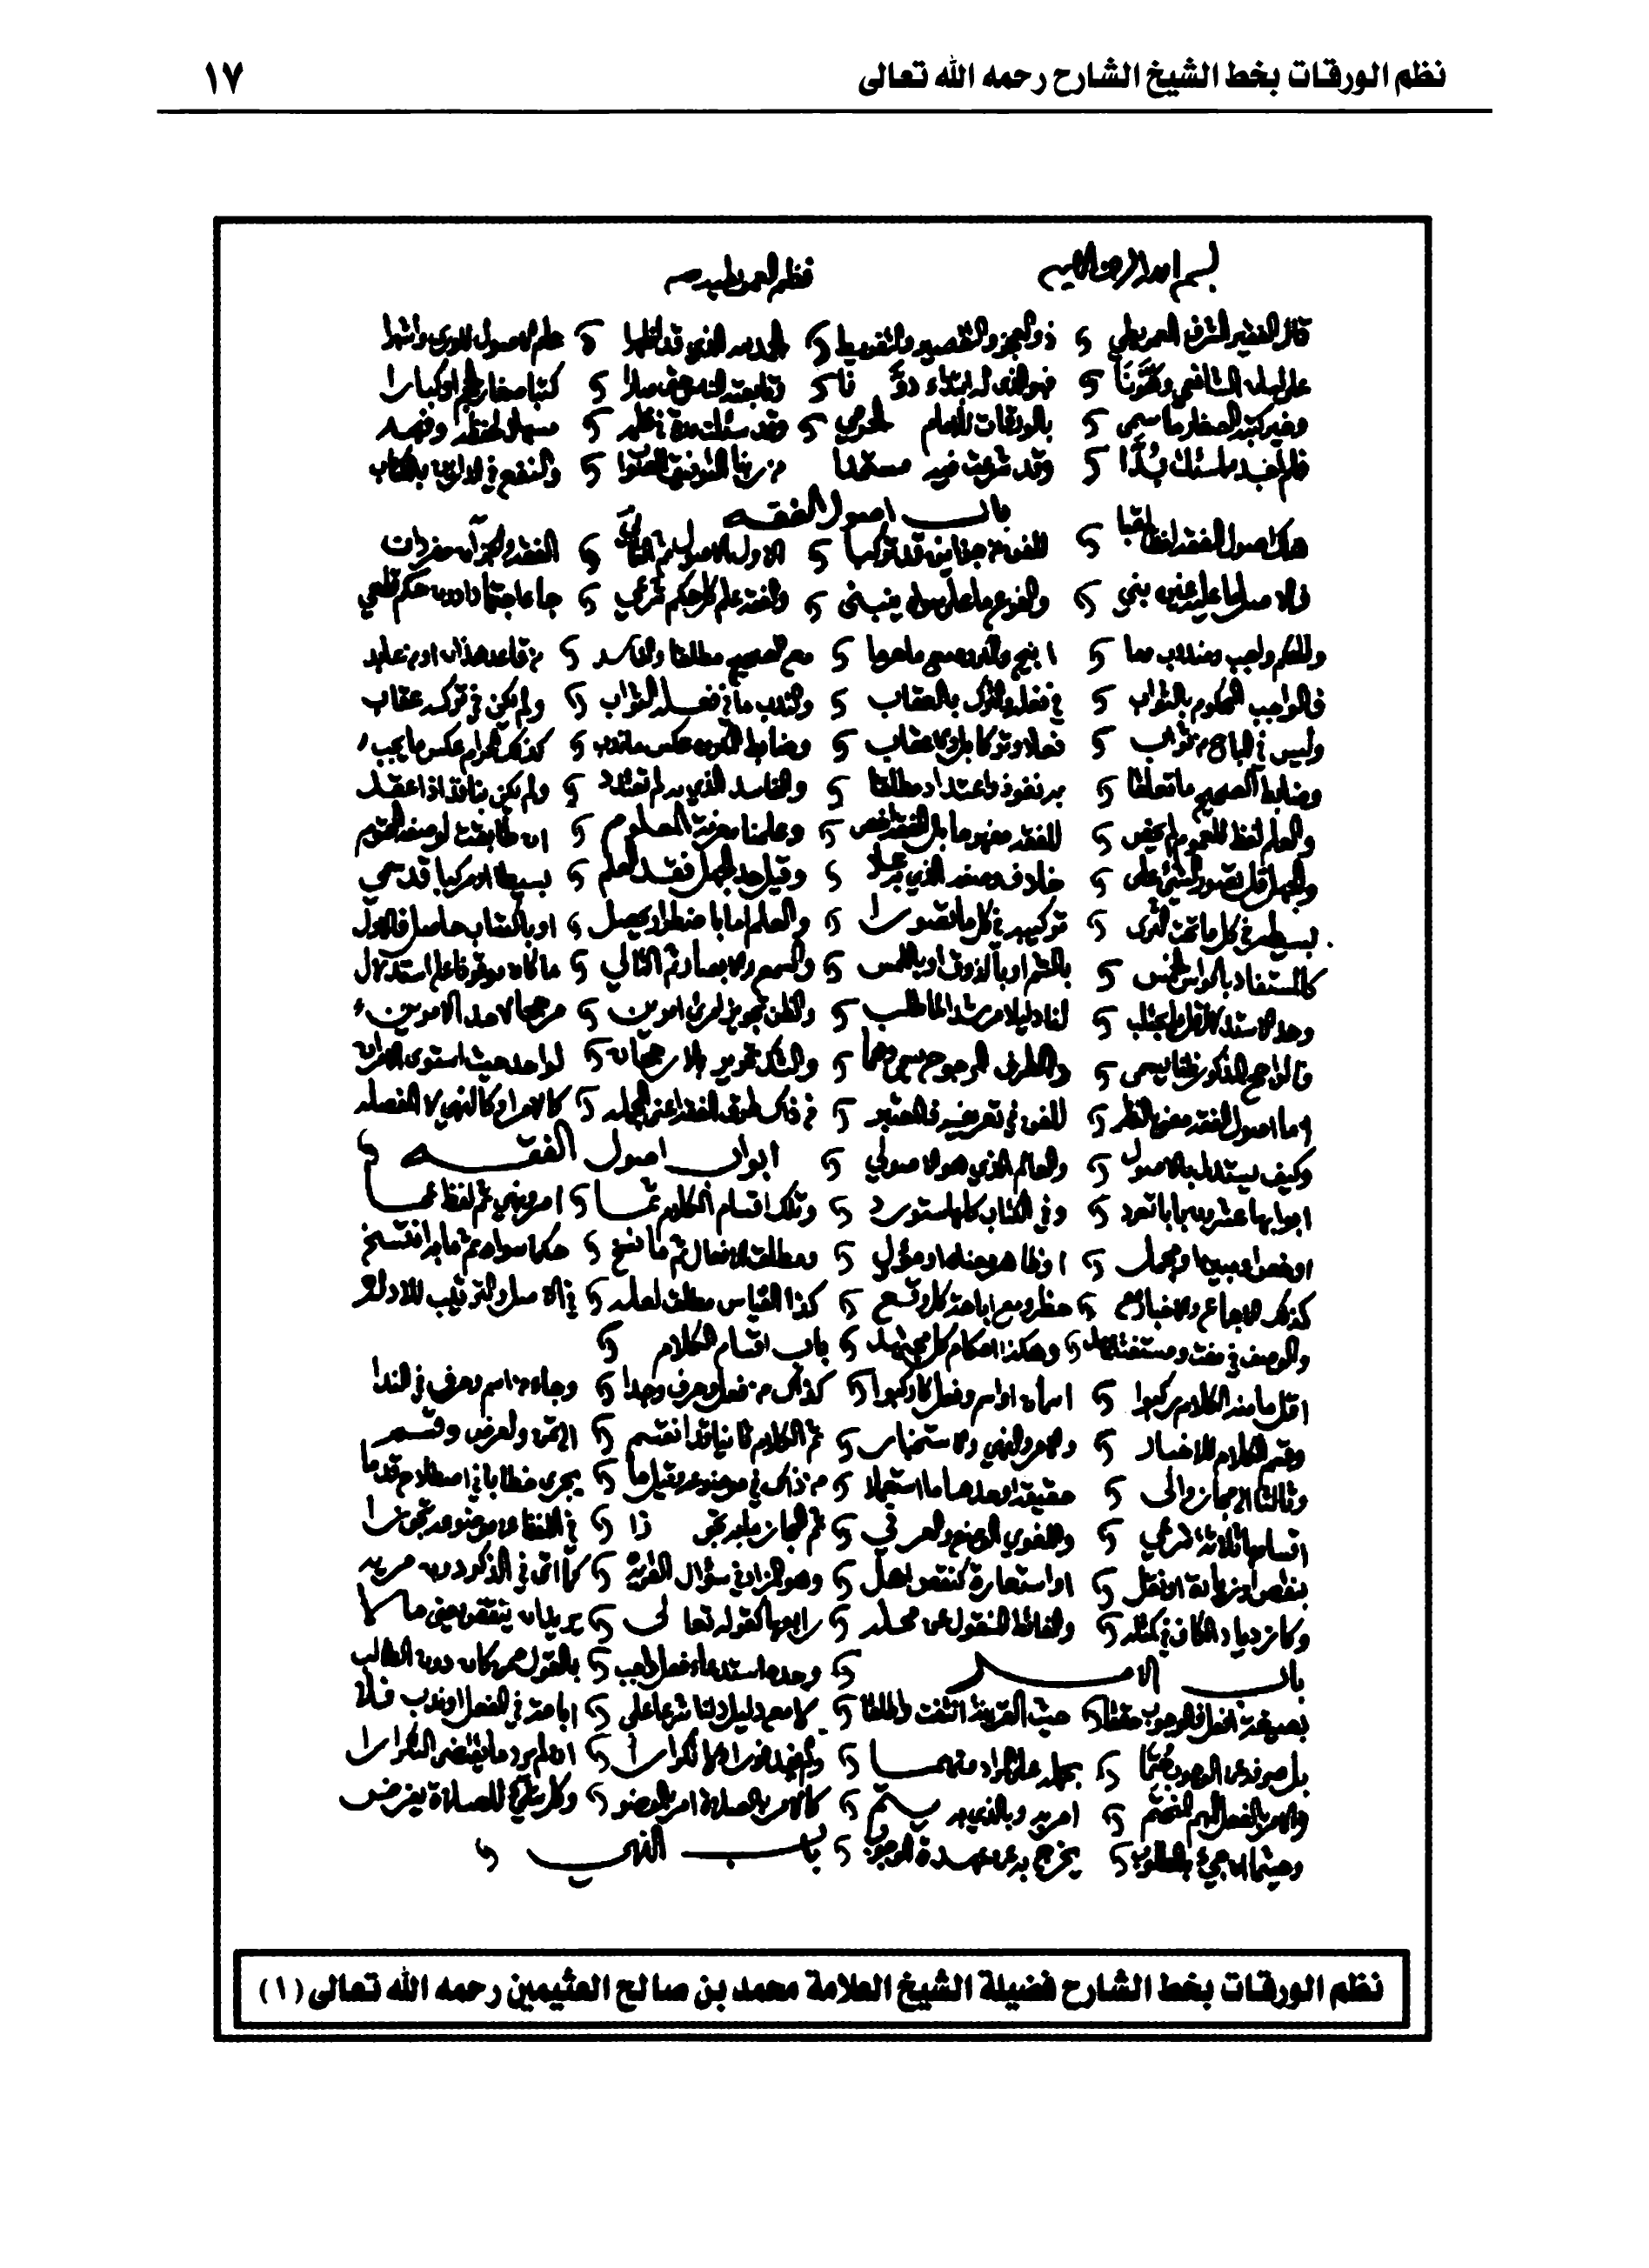 نظم الورقات بخط الشيخ الشارح رحمه الله تعالى ١٧
بسم الله الرحمن الرحيم نظم العمريطي
قال الفقير الشرف العمريطي ذو العجز والتقصير والتفريط الحمد لله الذي قد أظهرا علم الاصول للورى وأشهرا
على لسان الشافعي وهوّنا فهو الذي له ابتداء دوّنا وتابعته الناس حتى صارا كتبا صغار الحجم أو كبارا
وخير كتبه الصغار ما سمي بالورقات للإمام الحرمي وقد سئلت مدة في نظمه مسهلا لحفظه وفهمه
فلم أجد مما سئلت بُدّا وقد شرعت فيه مستمدا من ربنا التوفيق للصواب والنفع في الدارين بالكتاب
باب اصول الفقه
هاك اصول الفقه لفظا لقبا للفن من جزأين قد تركبا الاول الاصول ثم الثاني الفقه والجزآن مفردان
فالاصل ما عليه غيره بني والفرع ما على سواه ينبني والفقه علم كل حكم شرعي جاء اجتهادا دون حكم قطعي
والحكم واجب ومندوب وما ابيح والمكروه مع ما حرما مع الصحيح مطلقا والفاسد من قاعد هذان او من عابد
فالواجب المحكوم بالثواب في فعله والترك بالعقاب والندب ما في فعله الثواب ولم يكن في تركه عقاب
وليس في المباح من ثواب فعلا وتركا بل ولا عقاب وضابط المكروه عكس ما ندب كذلك الحرام عكس ما يجب
وضابط الصحيح ما تعلقا به نفوذ واعتداد مطلقا والفاسد الذي به لم تعتدد ولم يكن بنافذ اذا عقد
والعلم لفظ للعموم لم يخص للفقه مفهوما بل الفقه أخص وعلمنا معرفة المعلوم ان طابقت لوصفه المحتوم
والجهل قل تصور الشيء على خلاف وصفه الذي به علا وقيل حد الجهل فقد العلم بسيطا او مركبا قد سمي
بسيطه في كل ما تحت الثرى تركيبه في كل ما تصورا والعلم اما باضطرار يحصل او باكتساب حاصل فالاول
كالمستفاد بالحواس الخمس بالشم او بالذوق او باللمس والسمع والابصار ثم التالي ما كان موقوفا على استدلال
وحد الاستدلال قل ما يجتلب لنا دليلا مرشدا لما طلب والظن تجويز امرئ امرين مرجحا لاحد الامرين
فالراجح المذكور ظنا يسمى والطرف المرجوح يسمى وهما والشك تحرير بلا رجحان لواحد حيث استوى الامران
أما اصول الفقه معنى بالنظر للفن في تعريفه فالمعتبر في ذاك طرق الفقه اعني المجمله كالامر او كالنهي لا المفصله
وكيف يستدل بالاصول والعالم الذي هو الاصولي ابواب اصول الفقه
ابوابها عشرون بابا تسرد وفي الكتاب كلها ستورد وتلك اقسام الكلام ثما امر ونهي ثم لفظ عما
او خص او مبين او مجمل او ظاهر معناه او مؤول ومطلق الافعال ثم ما نسخ حكما سواه ثم ما به انتسخ
كذلك الاجماع والاخبار مع حظر ومع اباحة كل وقع كذا القياس مطلقا لعله في الاصل والترتيب للادله
والوصف في مفت ومستفت عهد وهكذا احكام كل مجتهد باب اقسام الكلام
اقل ما منه الكلام ركبوا اسمان او اسم وفعل كاركبوا كذاك من فعل وحرف وجدا وجاء من اسم وحرف في الندا
وقسم الكلام للاخبار والامر والنهي والاستخبار ثم الكلام ثانيا قد انقسم الى تمن ولعرض وقسم
وثالثا الى مجاز والى حقيقة وحدها ما استعملا من ذاك في موضوعه وقيل ما يجري خطابا في اصطلاح قدما
اقسامها ثلاثة شرعي واللغوي الوضع والعرفي ثم المجاز ما به تجوزا في اللفظ عن موضوعه تجوزا
بنقص او زيادة او نقل او استعارة كنقص اهل وهو المراد في سؤال القريه كما اتى في الذكر دون مريه
وكازدياد الكاف في كمثله والغائط المنقول عن محله رابعها كقوله تعالى يريد ان ينقض يعني مالا
باب الامر وحده استدعاء فعل واجب بالقول ممن كان دون الطالب
بصيغة افعل فالوجوب حققا حيث القرينة انتفت واطلقا لا مع دليل دلنا شرعا على اباحة في الفعل او ندب فلا
بل صرفه عن الوجوب حُتما بحمله على المراد منهما ولم يفد فورا ولا تكرارا ان لم يرد ما يقتضي التكرارا
والامر بالفعل المهم المنحتم امر به وبالذي به يتم كالامر بالصلاة امر بالوضو وكل شيء للصلاة يفرض
وحيثما ان جيء بالمطلوب يخرج به عن عهدة الوجوب باب النهي
نظم الورقات بخط الشارح فضيلة الشيخ العلامة محمد بن صالح العثيمين رحمه الله تعالى (١)